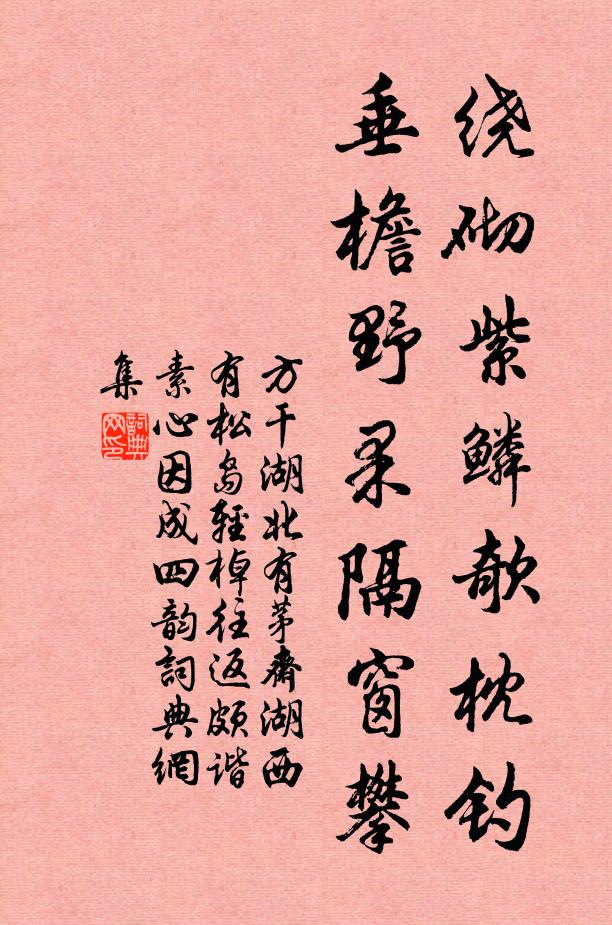 绕砌紫鳞欹枕钓
垂檐野果隔窗攀
方干湖北有茅斋湖西
有松岛轻棹往返颇谐
素心因成四韵詞典網
集
詞典网印